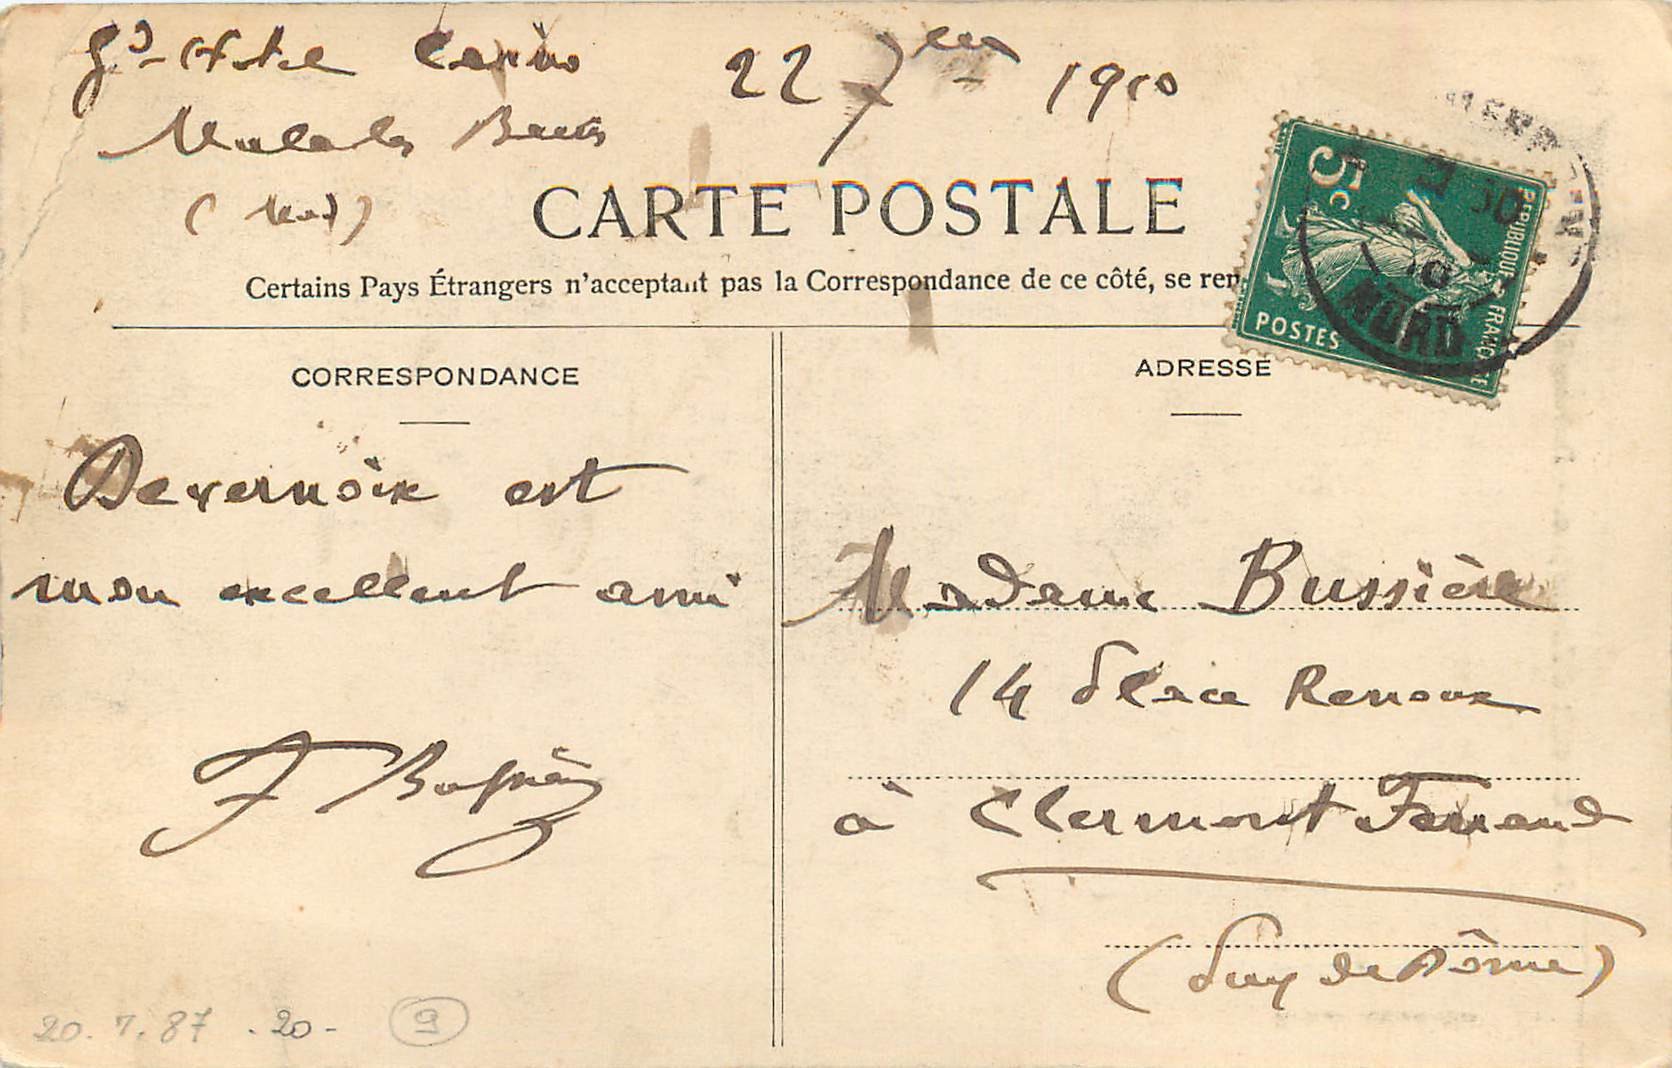 Gd Hotel Casino 22 7bre 1910
Malo les Bains
(Nord)
CARTE POSTALE
Certains Pays Étrangers n'acceptant pas la Correspondance de ce côté, se ren
5c
REPUBLIQUE FRANÇAISE
POSTES
NORD
CORRESPONDANCE
Devernoix est
mon excellent ami
ADRESSE
Madame Bussière
14 place Renoux
à Clermont Ferrand
(Puy de Dôme)
20.7.87 . 20 - 9